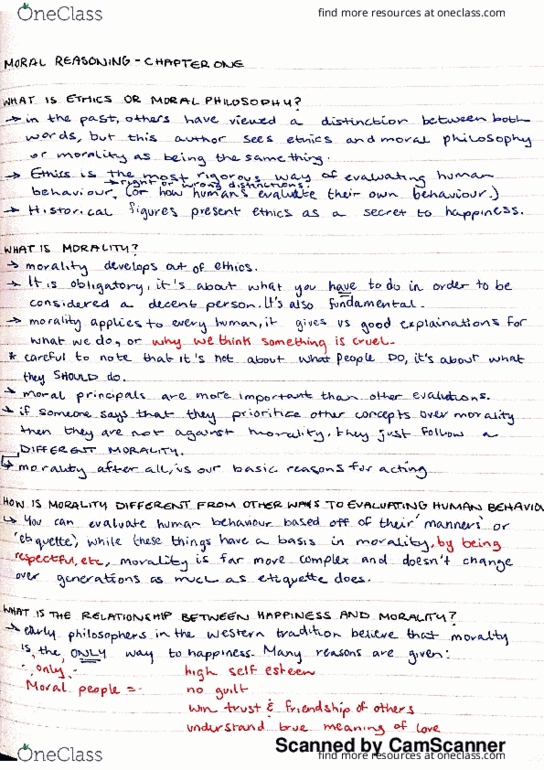 OneClass
find more resources at oneclass.com
MORAL REASONING - CHAPTER ONE
WHAT IS ETHICS OR MORAL PHILOSOPHY?
→ in the past, others have viewed a distinction between both
words, but this author sees ethics and moral philosophy
or morality as being the same thing.
→ Ethics is the most rigorous way of evaluating human
→ right or wrong distinctions.
behaviour. (or how humans evaluate their own behaviour.)
→ Historical figures present ethics as a secret to happiness.
WHAT IS MORALITY?
→ morality develops out of ethics.
→ It is obligatory, it's about what you have to do in order to be
considered a decent person. It's also fundamental.
→ morality applies to every human, it gives us good explainations for
what we do, or why we think something is cruel.
* careful to note that it's not about what people DO, it's about what
they SHOULD do.
→ moral principals are more important than other evalutions.
→ if someone says that they prioritize other concepts over morality
then they are not against morality, they just follow a
DIFFERENT MORALITY.
→ morality after all, is our basic reasons for acting
HOW IS MORALITY DIFFERENT FROM OTHER WAYS TO EVALUATING HUMAN BEHAVIOU
→ You can evaluate human behaviour based off of their 'manners' or
'etiquette', while these things have a basis in morality, by being
respectful, etc, morality is far more complex and doesn't change
over generations as much as etiquette does.
WHAT IS THE RELATIONSHIP BETWEEN HAPPINESS AND MORALITY?
→ early philosophers in the western tradition believe that morality
is the ONLY way to happiness. Many reasons are given:
only
high self esteem
Moral people =
no guilt
win trust & friendship of others
understand true meaning of love
Scanned by CamScanner
OneClass
find more resources at oneclass.com